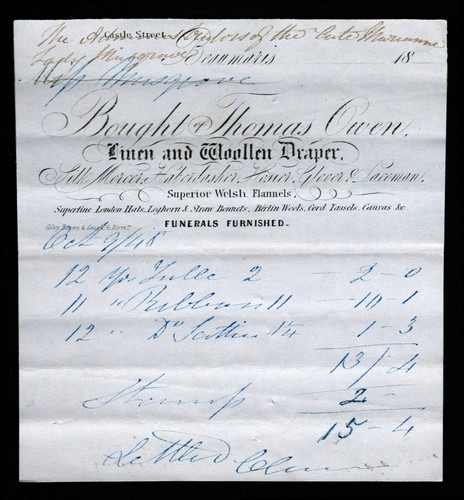 Castle Street
The Executors of the late Marianne
Lady Musgrove Beaumaris 18
Miss Musgrove
Bought of Thomas Owen,
Linen and Woollen Draper,
Silk Mercer, Haberdasher, Hosier, Glover & Laceman,
Superior Welsh Flannels,
Superfine London Hats, Leghorn & Straw Bonnets, Berlin Wools, Cord Tassels, Canvas &c
FUNERALS FURNISHED.
Oct 9/48
12 Yds Tulle 2 - 2 - 0
11 " Ribbon 11 - 10 - 1
12 " Do 1¼ 1 - 3
13/4
Stamp 2 -
15 - 4
Settled